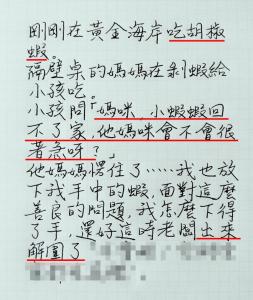 剛剛在黃金海岸吃胡椒
蝦。
隔壁桌的媽媽在剥蝦給
小孩吃。
小孩問「媽咪,小蝦蝦回
不了家,他媽咪會不會很
著急呀?」
他媽媽愣住了……我也放
下我手中的蝦,面對這麼
善良的問題,我怎麼下得
了手,還好這時老闆出來
解圍了